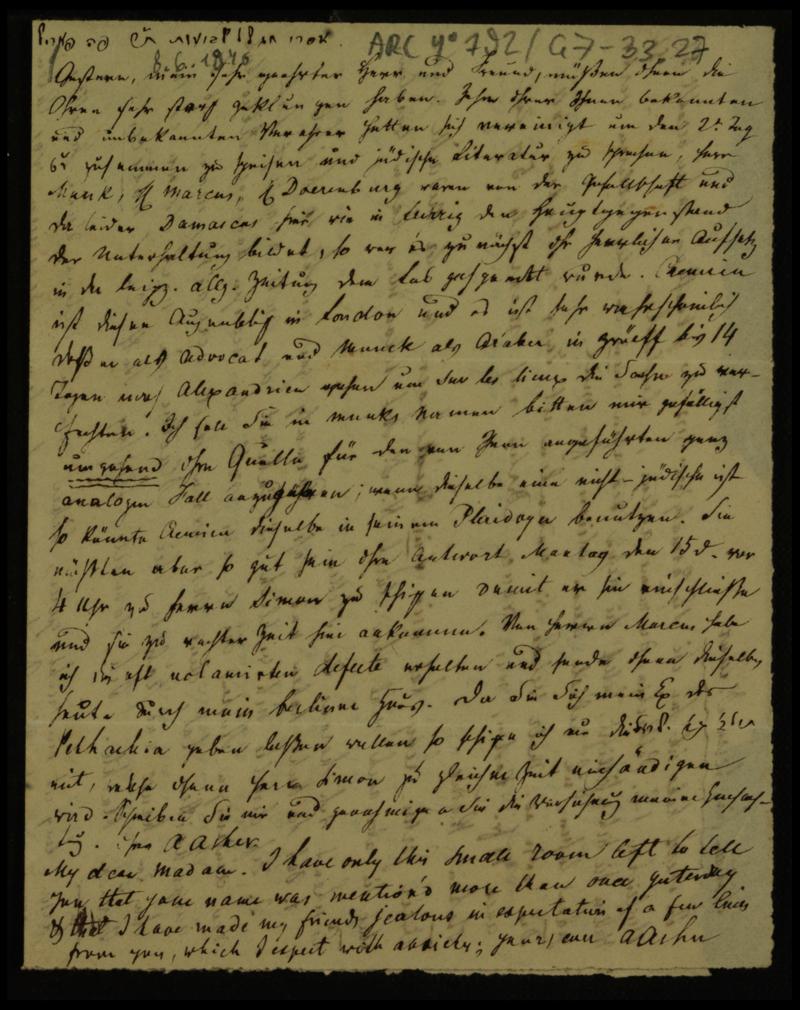 אסרו חג של שבועות ת״ר פה פאריז
ARC 4° 792/G7-33.27
8.6.1840
Gestern, mein sehr geehrter Herr und Freund, müßen Ihnen die
Ohren sehr stark geklungen haben. Zehn Ihrer Ihnen bekannten
und unbekannten Verehrer hatten sich vereinigt um den 2t Tag
zusammen zu speisen und jüdische Literatur zu sprechen, Herr
Munk, H Marcus, H Doerenburg waren von der Gesellschaft und
da leider Damascus hier wie in Leipzig den Hauptgegenstand
der Unterhaltung bildet, so war es zunächst Ihr herrlicher Aufsatz
in der Leipz. allg. Zeitung dem Lob gespendet wurde. Cremieux
ist diesen Augenblick in London und es ist sehr wahrscheinlich
daß er als Advocat und Munck als Araber in 14
Tagen nach Alexandrien gehen um sur les lieux die Sache zu ver-
fechten. Ich soll Sie in Munks Namen bitten mir gefälligst
umgehend Ihre Quelle für den von Ihnen angeführten ganz
analogen Fall anzugeben; wenn dieselbe eine nicht-jüdische ist
so könnte Cremieux dieselbe in seinem Plaidoyer benutzen. Sie
müßten aber so gut sein Ihre Antwort Montag den 15 d. vor
4 Uhr zu Herrn Simon zu schicken damit er sie einschließe
und sie zu rechter Zeit hier ankomme. Von Herrn Marcus habe
ich die oft reclamirten defecte erhalten und sende Ihnen dieselben
heute durch mein berliner Haus. Da Sie Sich mein Ex des
Pethachia geben laßen wollen so schicke ich
mit, welche Ihnen Herr Simon zu gleicher Zeit einhändigen
wird. Schreiben Sie mir und genehmigen Sie die Versicherung meiner Hochach-
tug. Ihr AAsher
My dear Madam. I have only this small room left to tell
you that your name was mention'd more than once yesterday
& I have made my friends jealous in expectation of a few lines
from you, which I expect with anxiety; yours ever AAsher